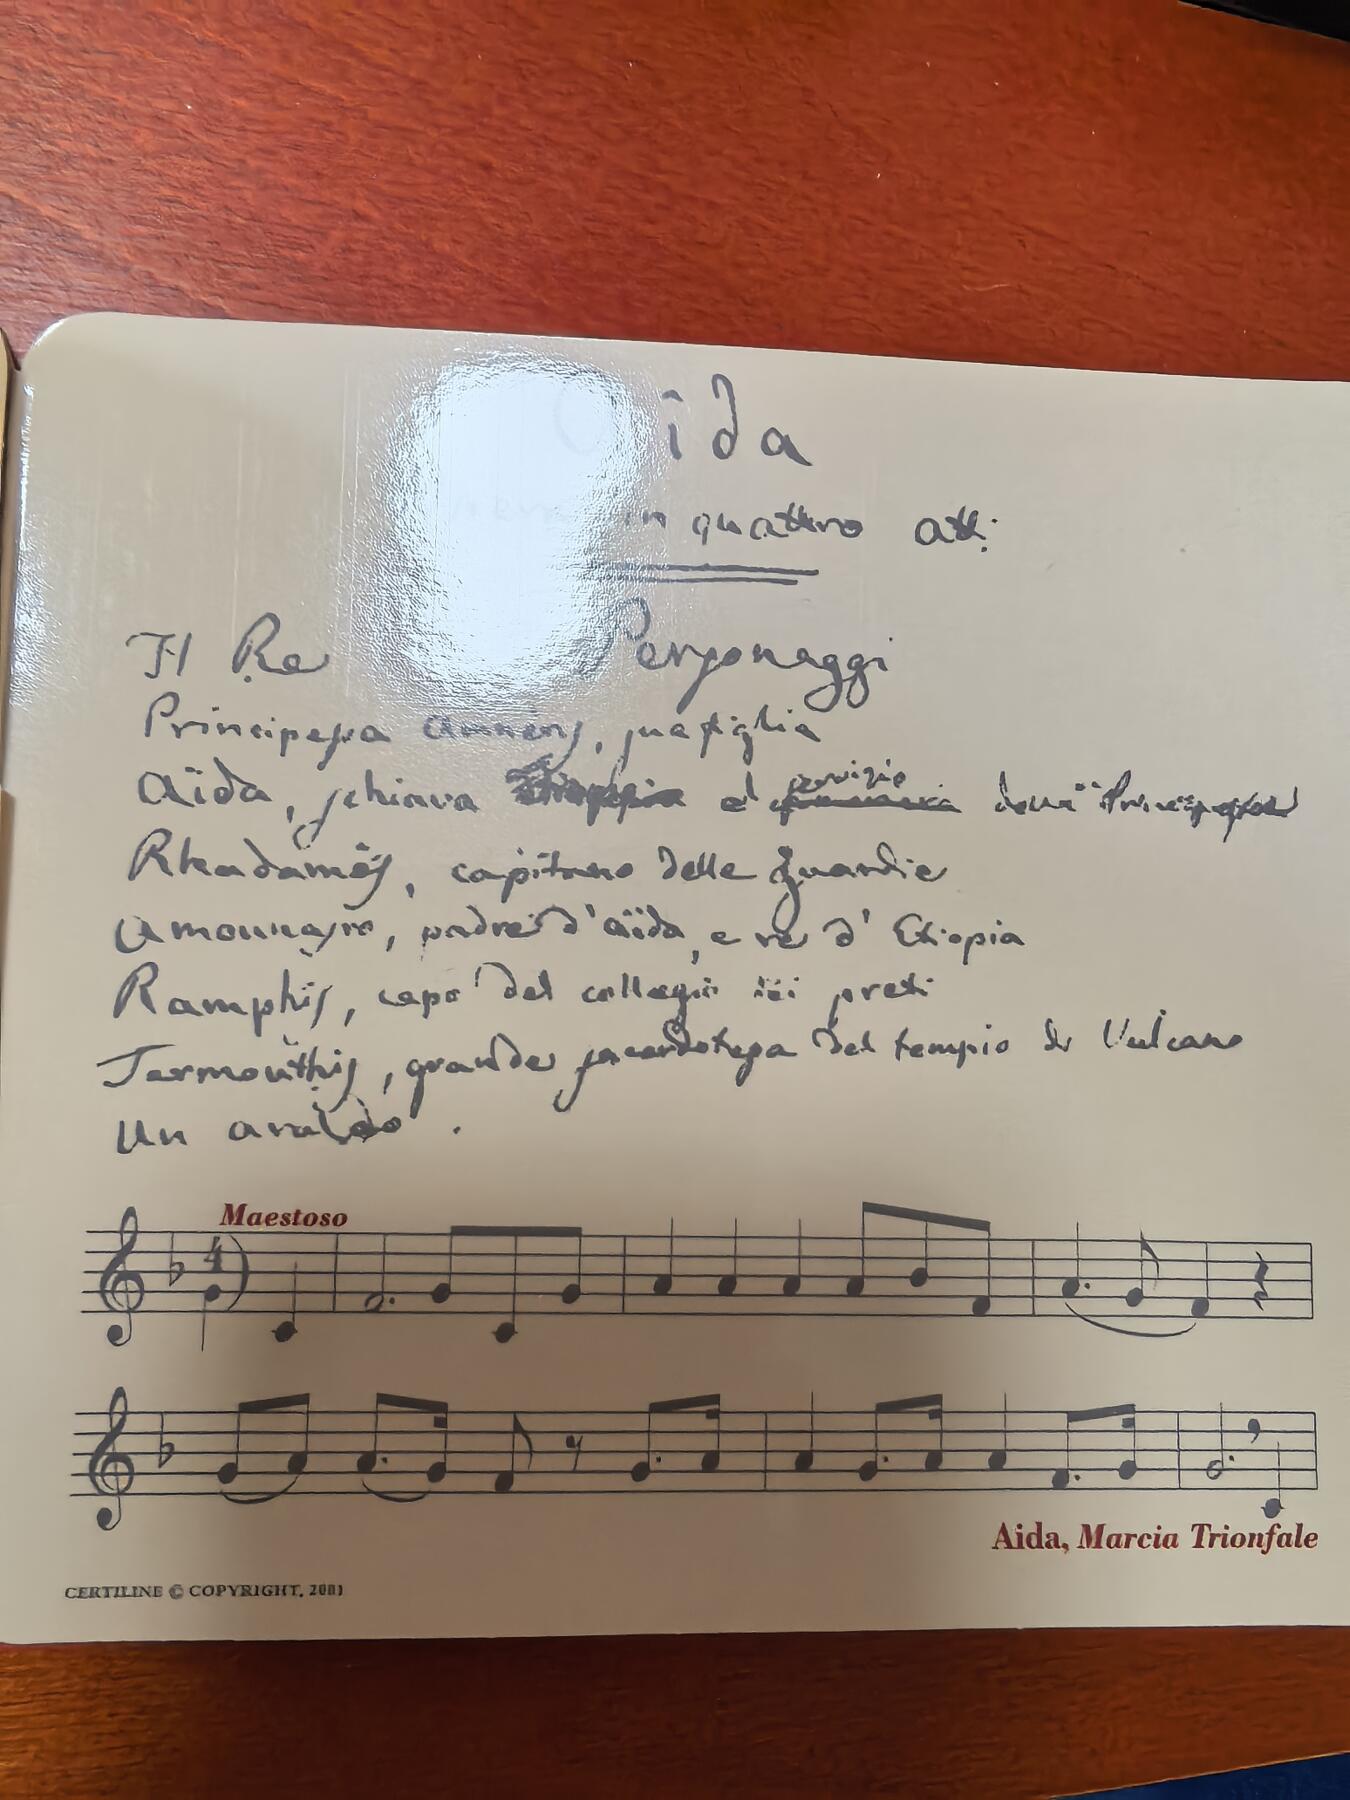 Aïda
in quattro atti
Personaggi
Il Re
Principessa Amneris, sua figlia
Aïda, schiava al servizio della Principessa
Rhadamès, capitano delle guardie
Amounasro, padre d'Aïda, e re d'Etiopia
Ramphis, capo del collegio dei preti
Termouthis, grande sacerdotessa del tempio di Vulcano
Un araldo.
Maestoso
4
Aida, Marcia Trionfale
CERTILINE © COPYRIGHT, 2001